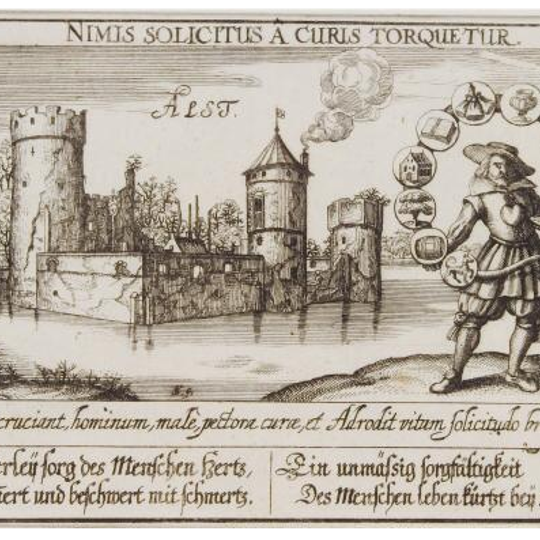 NIMIS SOLICITUS À CURIS TORQUETUR.
ÄLST.
cruciant, hominum, malè, pectora curæ, et Adrodit vitam solicitudo br
erleÿ sorg des Menschen Hertz,
iert und beschwert mit schmertz.
Ein unmässig sorgfältigkeit
Des Menschen leben kürtzt beÿ